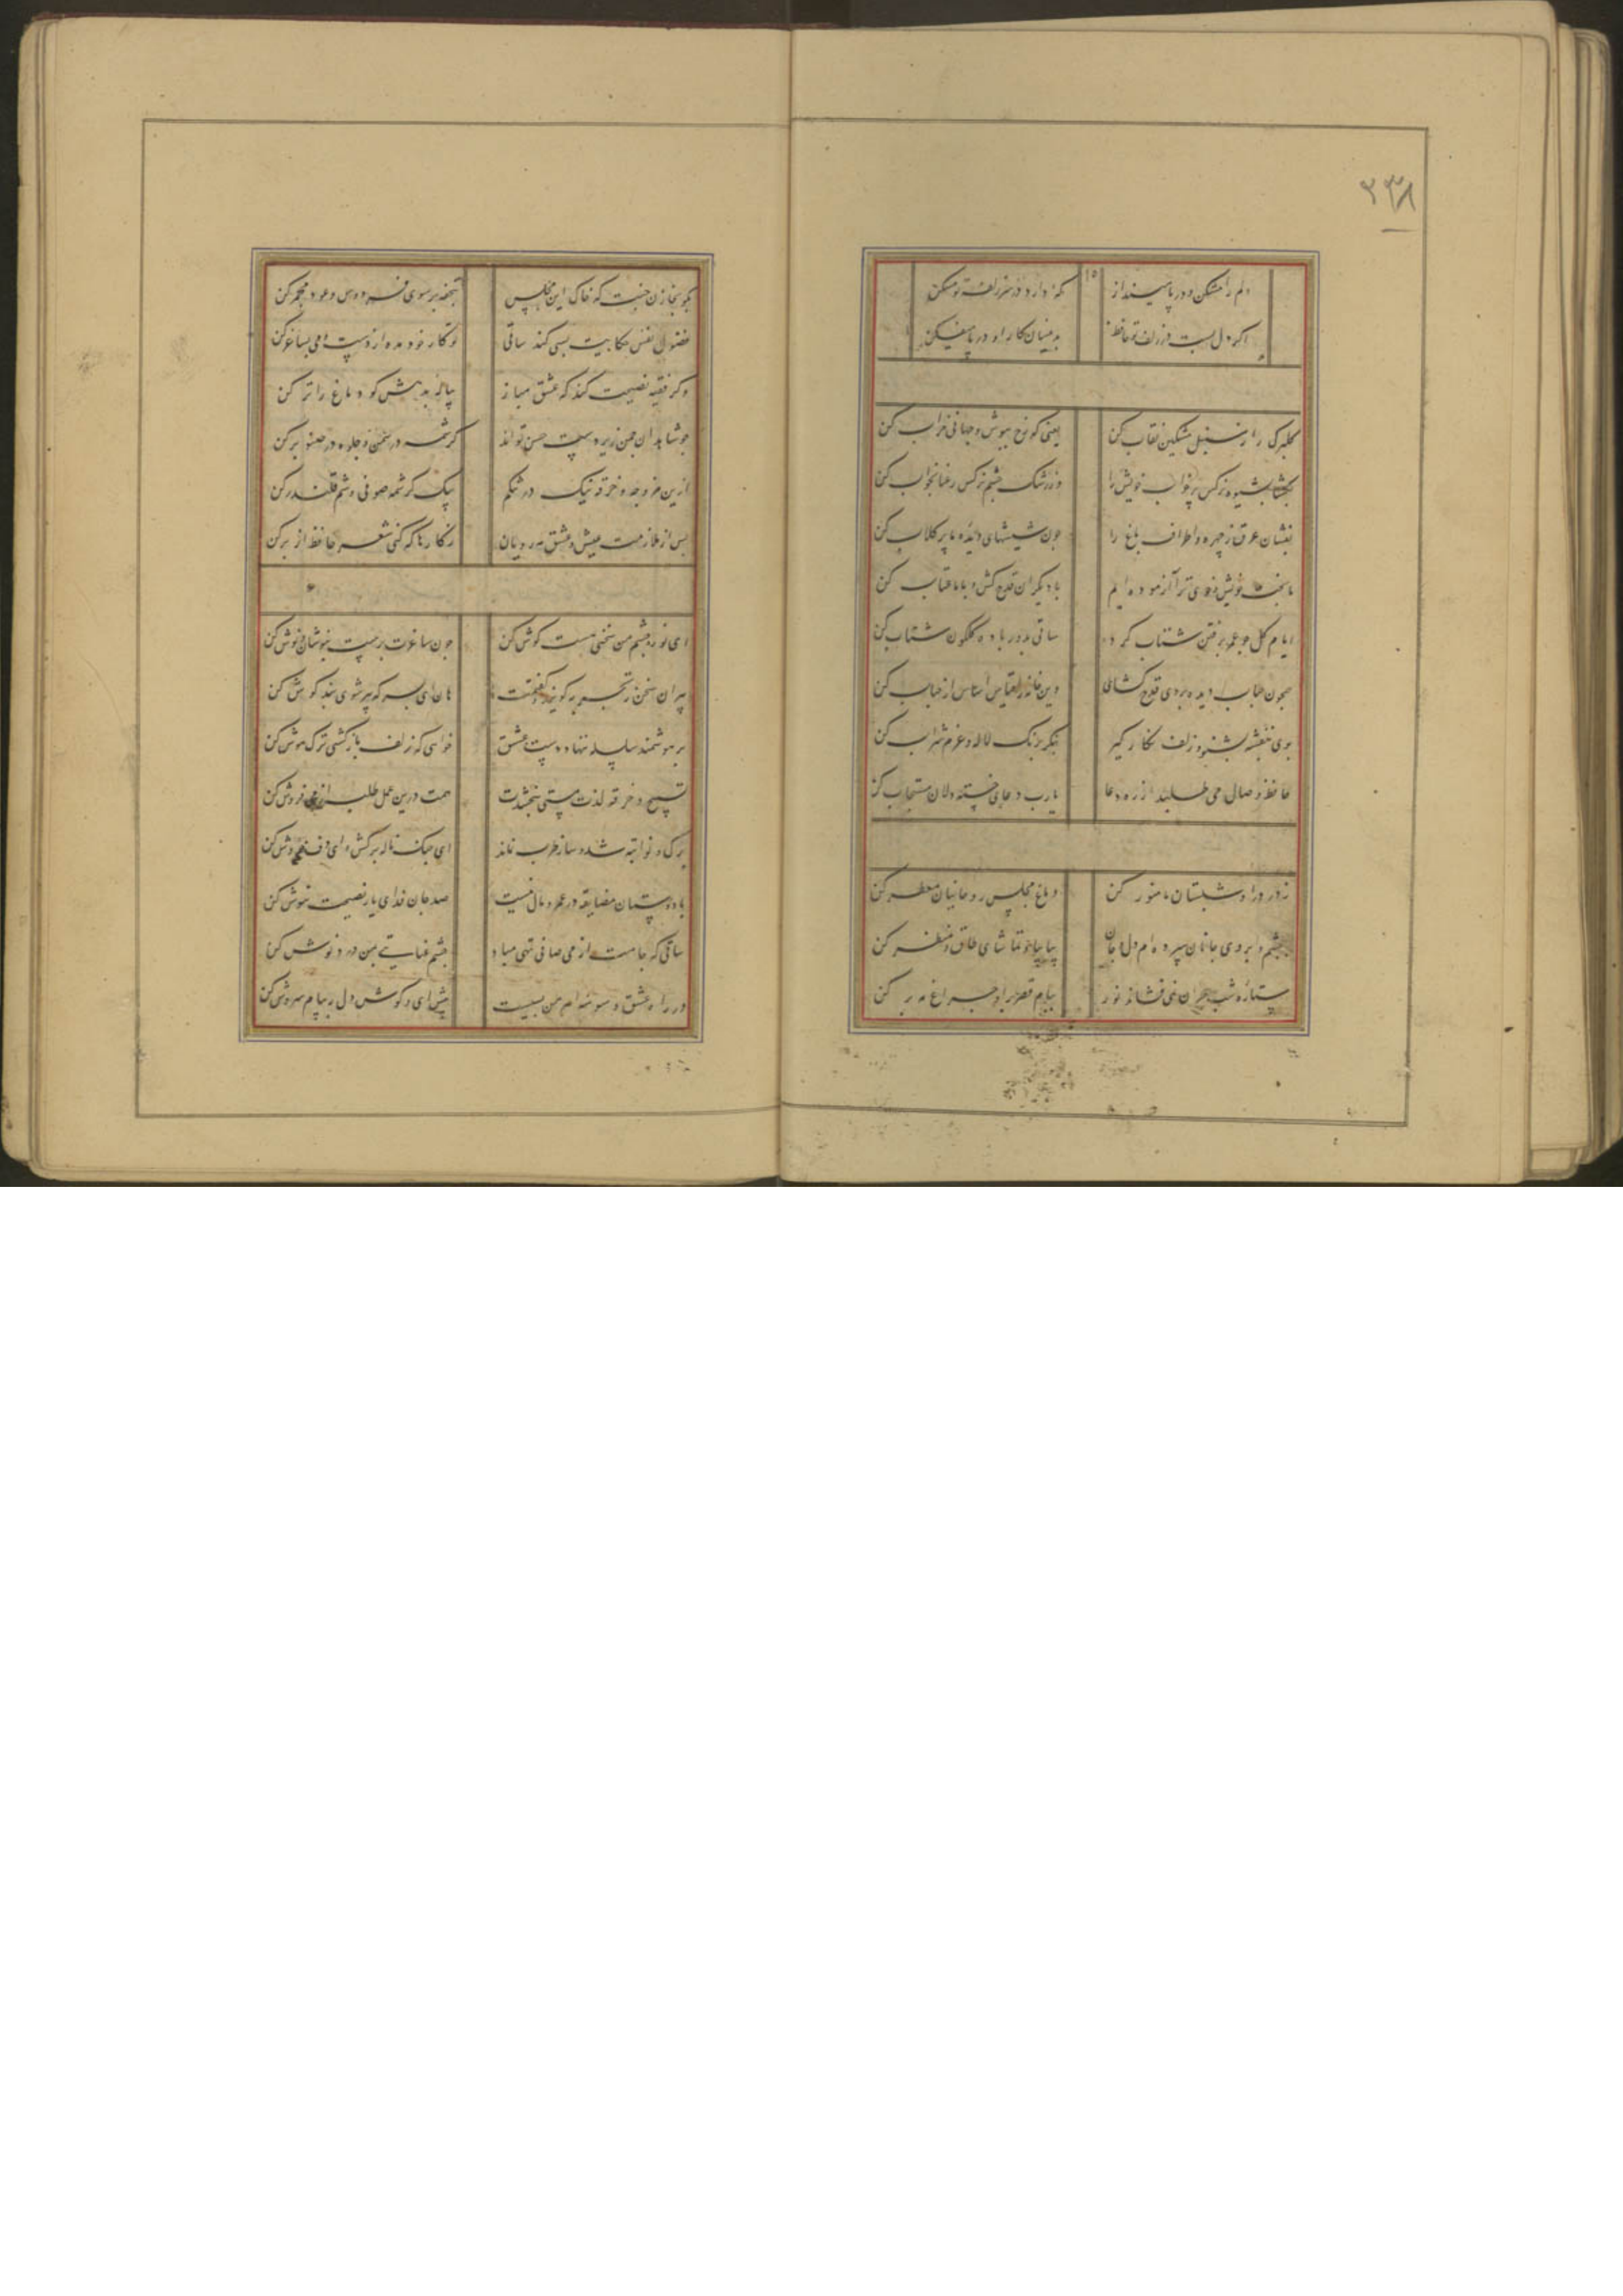 ۲۳۸
دلم را مشکن و در پا مینداز
که دارد در سر زلف تو مسکن
اکر دل بست در زلف تو حافظ
بدینسان کار او در پا میفکن
کلبرک را ز سنبل مشکین نقاب کن
یعنی که رخ بپوش و جهانی خراب کن
بکشا بشیوه نرکس پر خواب خویش را
وز رشک چشم نرکس رعنا بخواب کن
بفشان عرق ز چهره و اطراف باغ را
چون شیشهای دیده ما پر کلاب کن
ما بخت خویش و خوی ترا آزموده ایم
با دیکران قدح کش و با ما عتاب کن
ایام کل چو عمر برفتن شتاب کرد
ساقی بدور باده کلکون شتاب کن
همچون حباب دیده بروی قدح کشای
وین خانه را قیاس اساس از حباب کن
بوی بنفشه بشنو و زلف نکار کیر
بنکر برنک لاله و عزم شراب کن
حافظ وصال می طلبد از ره دعا
یارب دعای خسته دلان مستجاب کن
ز در درا و شبستان ما منور کن
دماغ مجلس روحانیان معطر کن
بچشم و ابروی جانان سپرده ام دل و جان
بیا بیا و تماشای طاق و منظر کن
ستاره شب هجران نمی فشاند نور
ببام قصر برا و چراغ مه بر کن
بکو بخازن جنت که خاک این مجلس
بتحفه بر سوی فردوس و عود مجمر کن
فضول نفس حکایت بسی کند ساقی
تو کار خود مده از دست و می بساغر کن
وکر فقیه نصیحت کند که عشق مباز
پیاله بدهش کو دماغ را تر کن
چو شاهدان چمن زیر دست حسن تواند
کرشمه در سخن و جلوه در صنوبر کن
ازین مزوجه و خرقه نیک در تنکم
بیک کرشمه صوفی وشم قلندر کن
پس از ملازمت عیش و عشق مه رویان
ز کارها که کنی شعر حافظ از بر کن
ای نور چشم من سخنی هست کوش کن
چون ساغرت پرست بنوشان و نوش کن
پیران سخن ز تجربه کویند کفتمت
هان ای پسر که پیر شوی پند کوش کن
بر هوشمند سلسله ننهاد دست عشق
خواهی که زلف یار کشی ترک هوش کن
تسبیح و خرقه لذت مستی نبخشدت
همت درین عمل طلب از می فروش کن
برک و نوا تبه شد و ساز طرب نماند
ای چنک ناله برکش و ای دف خروش کن
با دوستان مضایقه در عمر و مال نیست
صد جان فدای یار نصیحت نیوش کن
ساقی که جامت از می صافی تهی مباد
چشم عنایتی بمن درد نوش کن
در راه عشق وسوسه اهرمن بسیست
پیش ای و کوش دل بپیام سروش کن